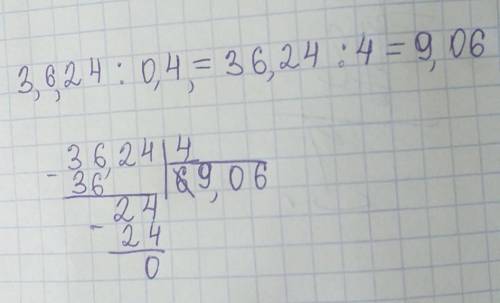 3,6,24 : 0,4, = 36,24 : 4 = 9,06
- 36,24 | 4
36 | 9,06
24
- 24
0